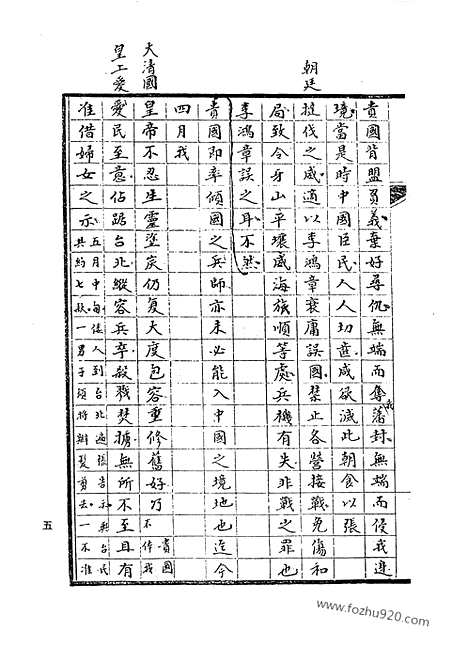 貴國背盟負義棄好尋仇無端而奪我藩封無端而侵我邊
境當是時中國臣民人人切齒咸欲滅此朝食以張
朝廷撻伐之威適以李鴻章衰庸誤國禁止各營接戰免傷和
局致令牙山平壤威海旅順等處兵機有失非戰之罪也
李鴻章誤之耳不然
貴國即率傾國之兵師亦未必能入中國之境地也迄今
四月我
大清國皇帝不忍生靈塗炭仍复大度包容重修舊好乃貴國不体我
皇上愛愛民至意佔踞台北縱容兵卒殺戮焚擄無所不至且有
准借婦女之示五月中旬倭人到台北遍張告示與台民共約七款一男子須將辮髮剪去一不准
五
www.fozhu920.com